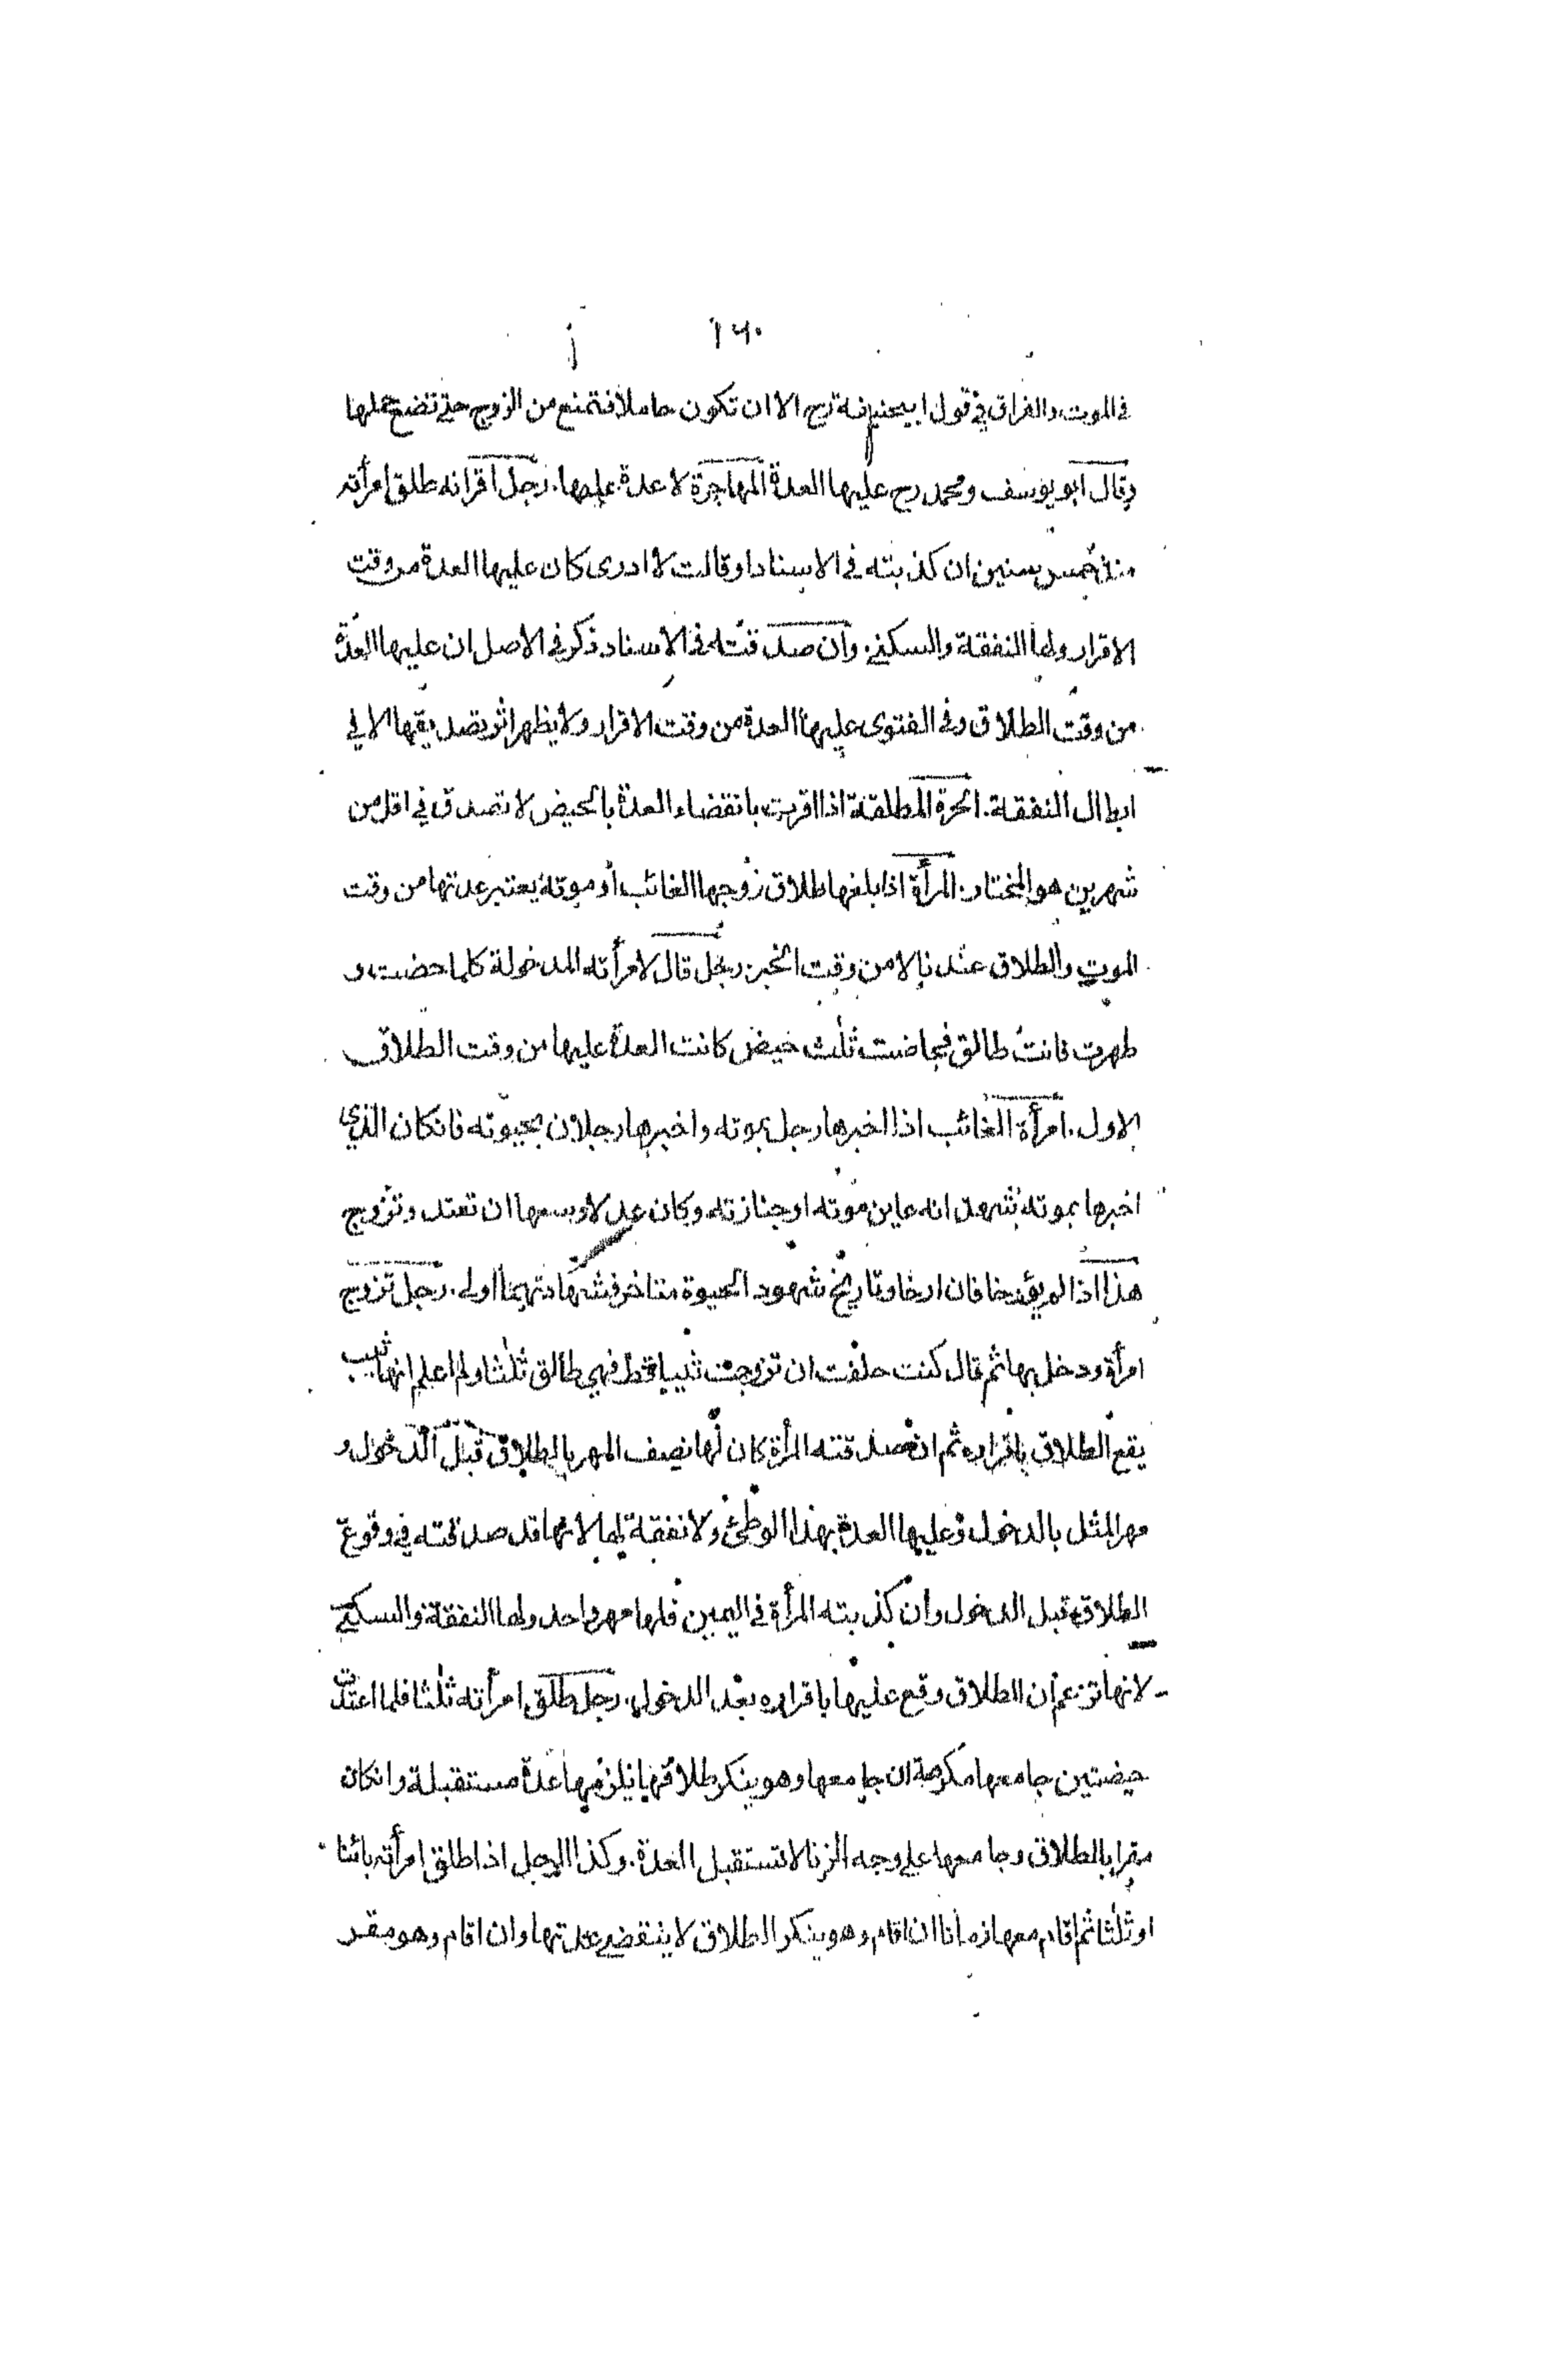 ١٦٠
في الموت والفراق في قول ابيحنيفة رح الا ان تكون حاملا فتمنع من الزوج حتى تضع حملها
وقال ابو يوسف ومحمد رح عليها العدة المهاجرة لا عدة عليها. رجل اقر انه طلق امرأته
منذ خمس سنين ان كذبته في الاسناد او قالت لا ادرى كان عليها العدة من وقت
الاقرار ولها النفقة والسكنى. وان صدقته في الاسناد ذكر في الاصل ان عليها العدة
من وقت الطلاق وفي الفتوى عليها العدة من وقت الاقرار ولا يظهر اثر تصديقها الا في
ابطال النفقة. الحرة المطلقة اذا اقرت بانقضاء العدة بالحيض لا تصدق في اقل من
شهرين هو المختار. المرأة اذا بلغها طلاق زوجها الغائب او موته يعتبر عدتها من وقت
الموت والطلاق عندنا لا من وقت الخبر. رجل قال لامرأته المدخولة كلما حضت و
طهرت فانت طالق فحاضت ثلث حيض كانت العدة عليها من وقت الطلاق
الاول. امرأة الغائب اذا اخبرها رجل بموته واخبرها رجلان بحيوته فانكان الذي
اخبرها بموته شهد انه عاين موته او جنازته وكان عدلا وسعها ان تعتد وتزوج
هذا اذا لم يؤرخا فان ارخا وتاريخ شهود الحيوة متاخر فشهادتهما اولى. رجل تزوج
امرأة ودخل بها ثم قال كنت حلفت ان تزوجت ثيبا قط فهي طالق ثلثا ولم اعلم انها ثيب
يقع الطلاق باقراره ثم ان صدقته المرأة كان لها نصف المهر بالطلاق قبل الدخول و
مهر المثل بالدخول وعليها العدة بهذا الوطئ ولا نفقة لها لانها قد صدقته في وقوع
الطلاق قبل الدخول وان كذبته المرأة في اليمين فلها مهر واحد ولها النفقة والسكنى
لانها تزعم ان الطلاق وقع عليها باقراره بعد الدخول. رجل طلق امرأته ثلثا فلما اعتدت
حيضتين جامعها مكرهة ان جامعها وهو ينكر طلاقها يلزمها عدة مستقبلة وانكان
مقرا بالطلاق وجامعها على وجه الزنا لا تستقبل العدة. وكذا الرجل اذا طلق امرأته بائنا
او ثلثا ثم اقام معها زمانا ان اقام وهو ينكر الطلاق لا ينقضي عدتها وان اقام وهو مقر